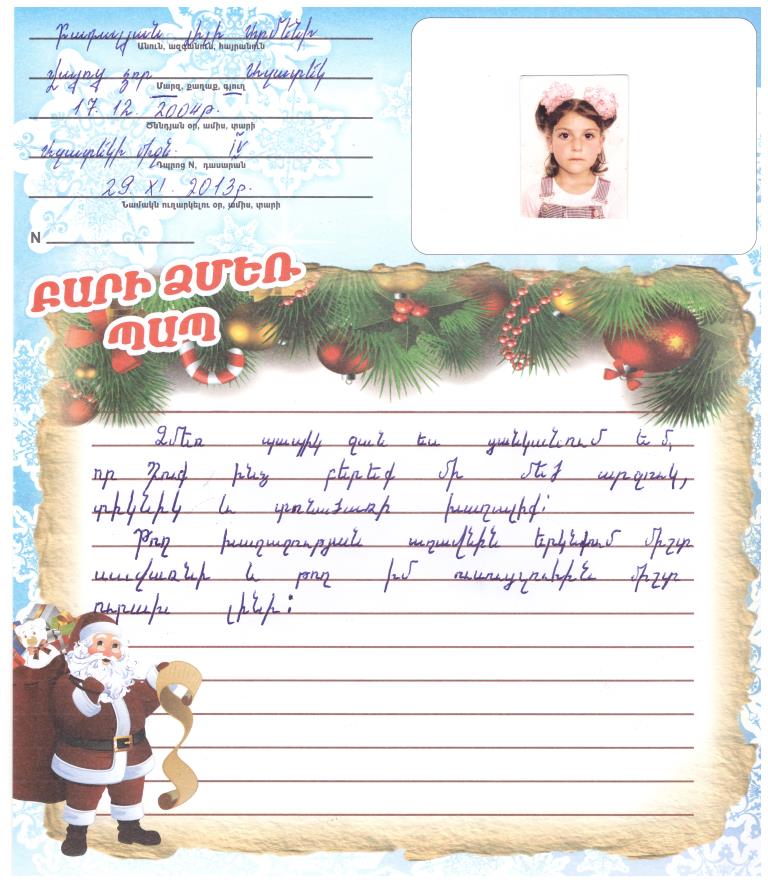 Բադալյան Լիլի Արմենի
Անուն, ազգանուն, հայրանուն
Վայոց ձոր Ազատեկ
Մարզ, քաղաք, գյուղ
17. 12. 2004թ.
Ծննդյան օր, ամիս, տարի
Ազատեկի միջն. IV
Դպրոց N, դասարան
29 XI. 2013թ.
Նամակն ուղարկելու օր, ամիս, տարի
N
ԲԱՐԻ ՁՄԵՌ
ՊԱՊ
Ձմեռ պապիկ ջան ես ցանկանում եմ,
որ Դուք ինձ բերեք մի մեծ արջուկ,
տիկնիկ և տոնածառի խաղալիք:
Թող խաղաղության աղավնին երկնքում միշտ
սավառնի և թող իմ ուսուցչուհին միշտ
ուրախ լինի: